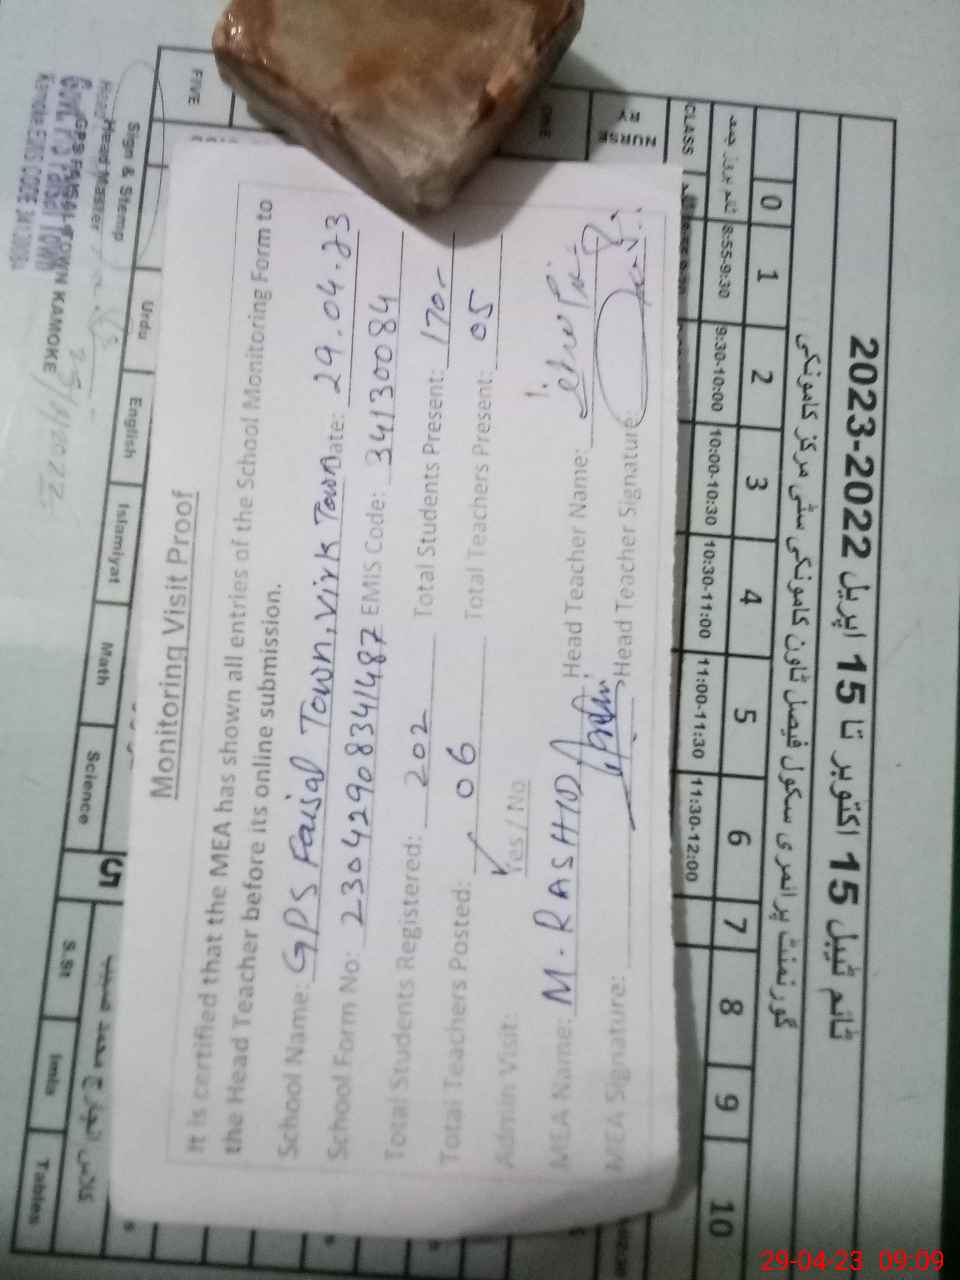 Monitoring Visit Proof
It is certified that the MEA has shown all entries of the School Monitoring Form to
the Head Teacher before its online submission.
School Name: GPS Faisal Town, Virk Town Date: 29.04.23
School Form No: 23042908341487 EMIS Code: 34130084
Total Students Registered: 202 Total Students Present: 170
Total Teachers Posted: 06 Total Teachers Present: 05
Admin Visit: Yes/No
MEA Name: M. RASHID Head Teacher Name:
MEA Signature: Head Teacher Signature:
ٹائم ٹیبل 15 اکتوبر تا 15 اپریل 2022-2023
گورنمنٹ پرائمری سکول فیصل ٹاون کامونکی سٹی مرکز کامونکی
0 1 2 3 4 5 6 7 8 9 10
ٹائم بروز جمعہ 8:55-9:30 9:30-10:00 10:00-10:30 10:30-11:00 11:00-11:30 11:30-12:00
CLASS
NURSE
RY
ONE
FIVE
Urdu English Islamiyat Math Science S.St Imla Tables
5
Sign & Stemp
Head Master
GPS FAISAL TOWN KAMOKE
29-04-23 09:09